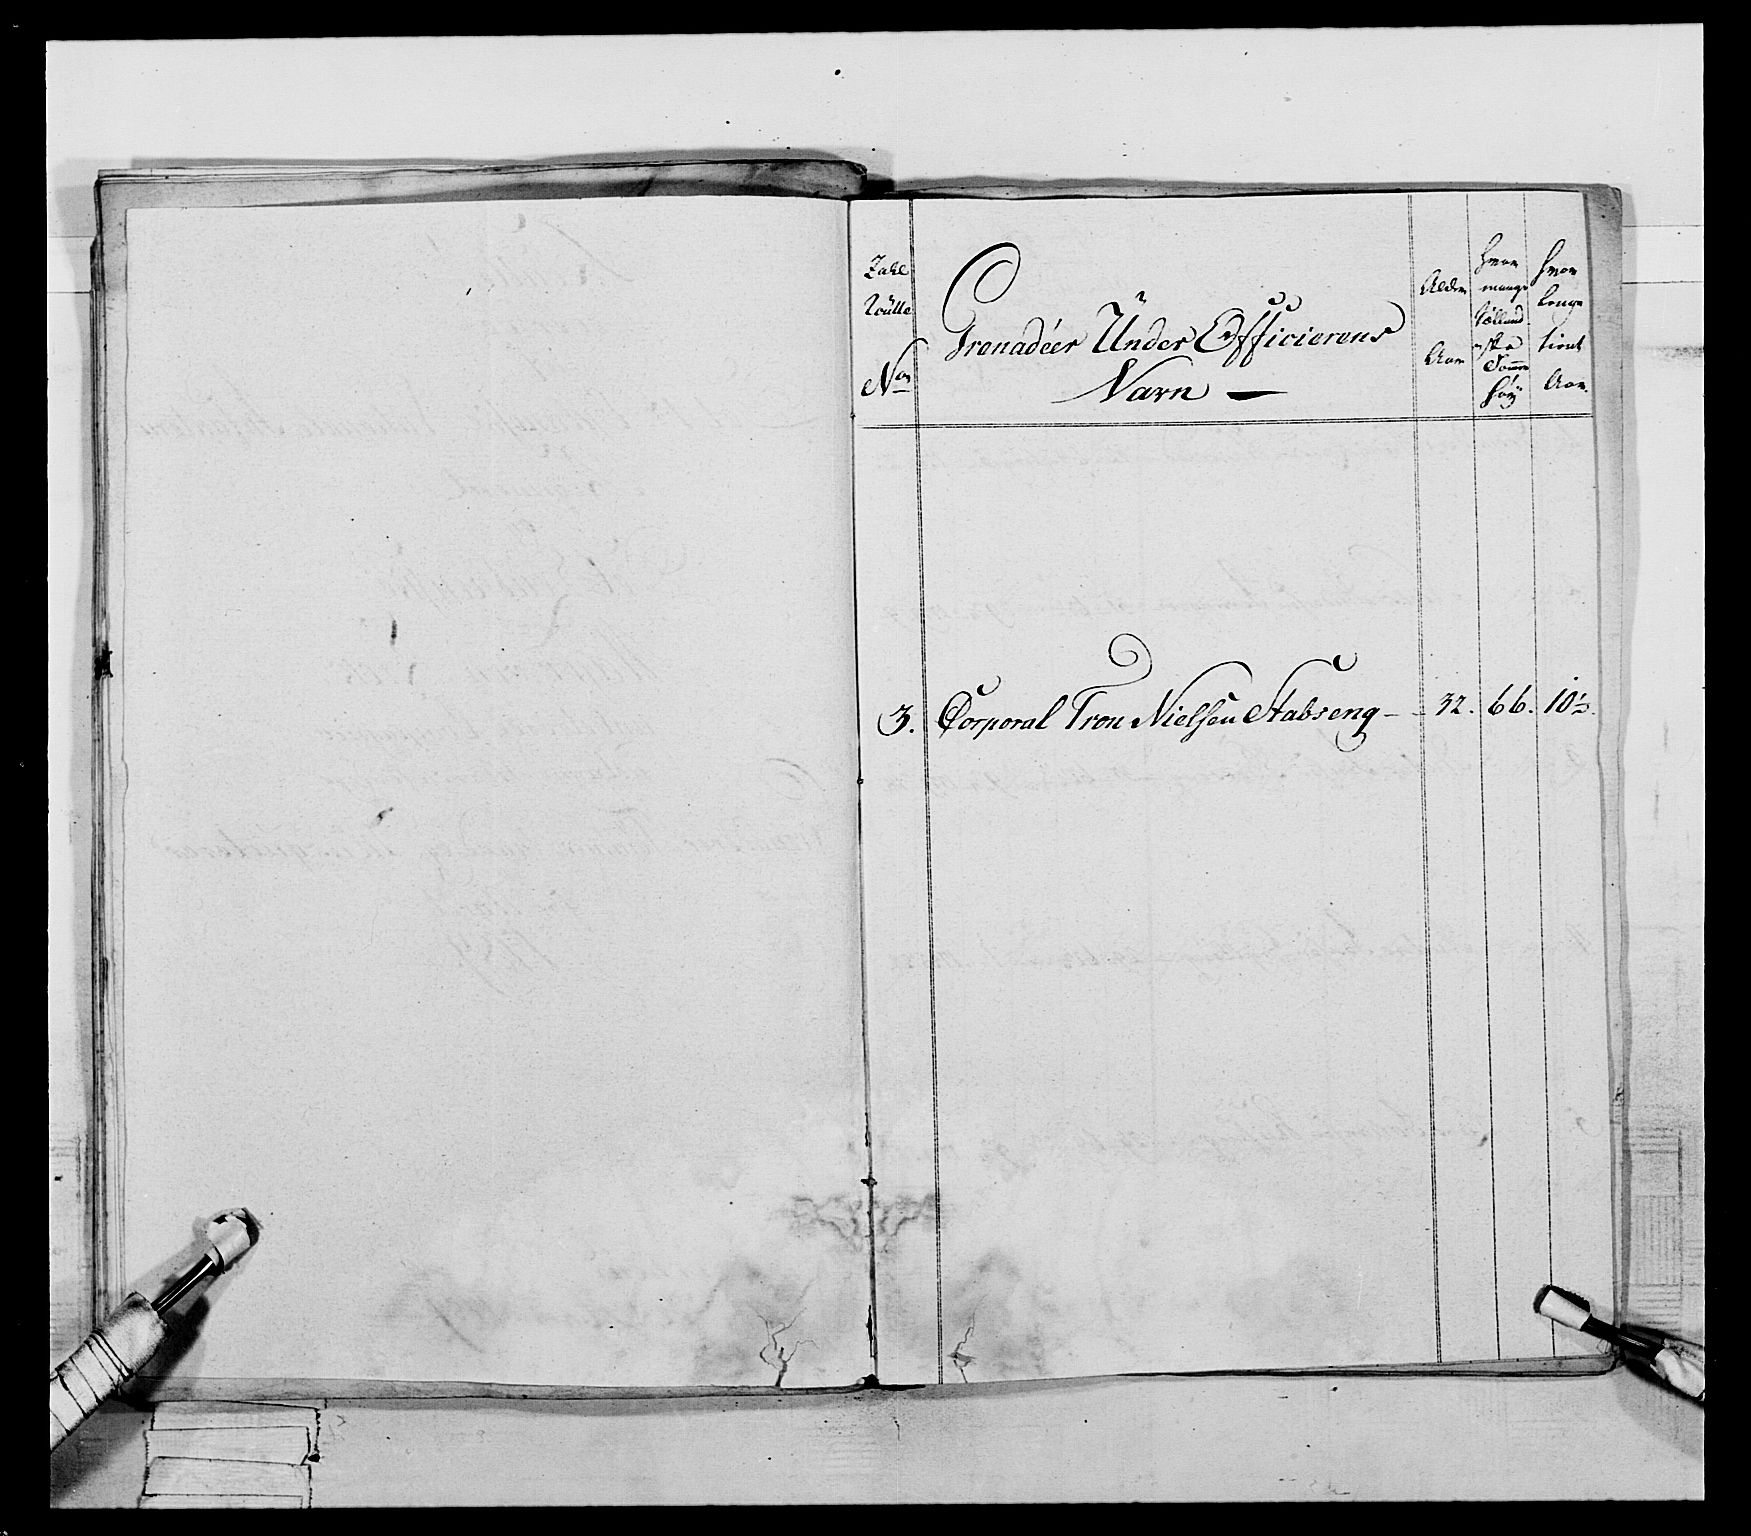 Zahl
Rulle
No
Grenadéer Under Officierens
Navn —
Alder
Aar
Hvor
mange
Sælland
Tomer
höy
Hvor
lenge
tient
Aar.
3. Corporal Tron Nielsen Stabseng — 32. 66. 10½.